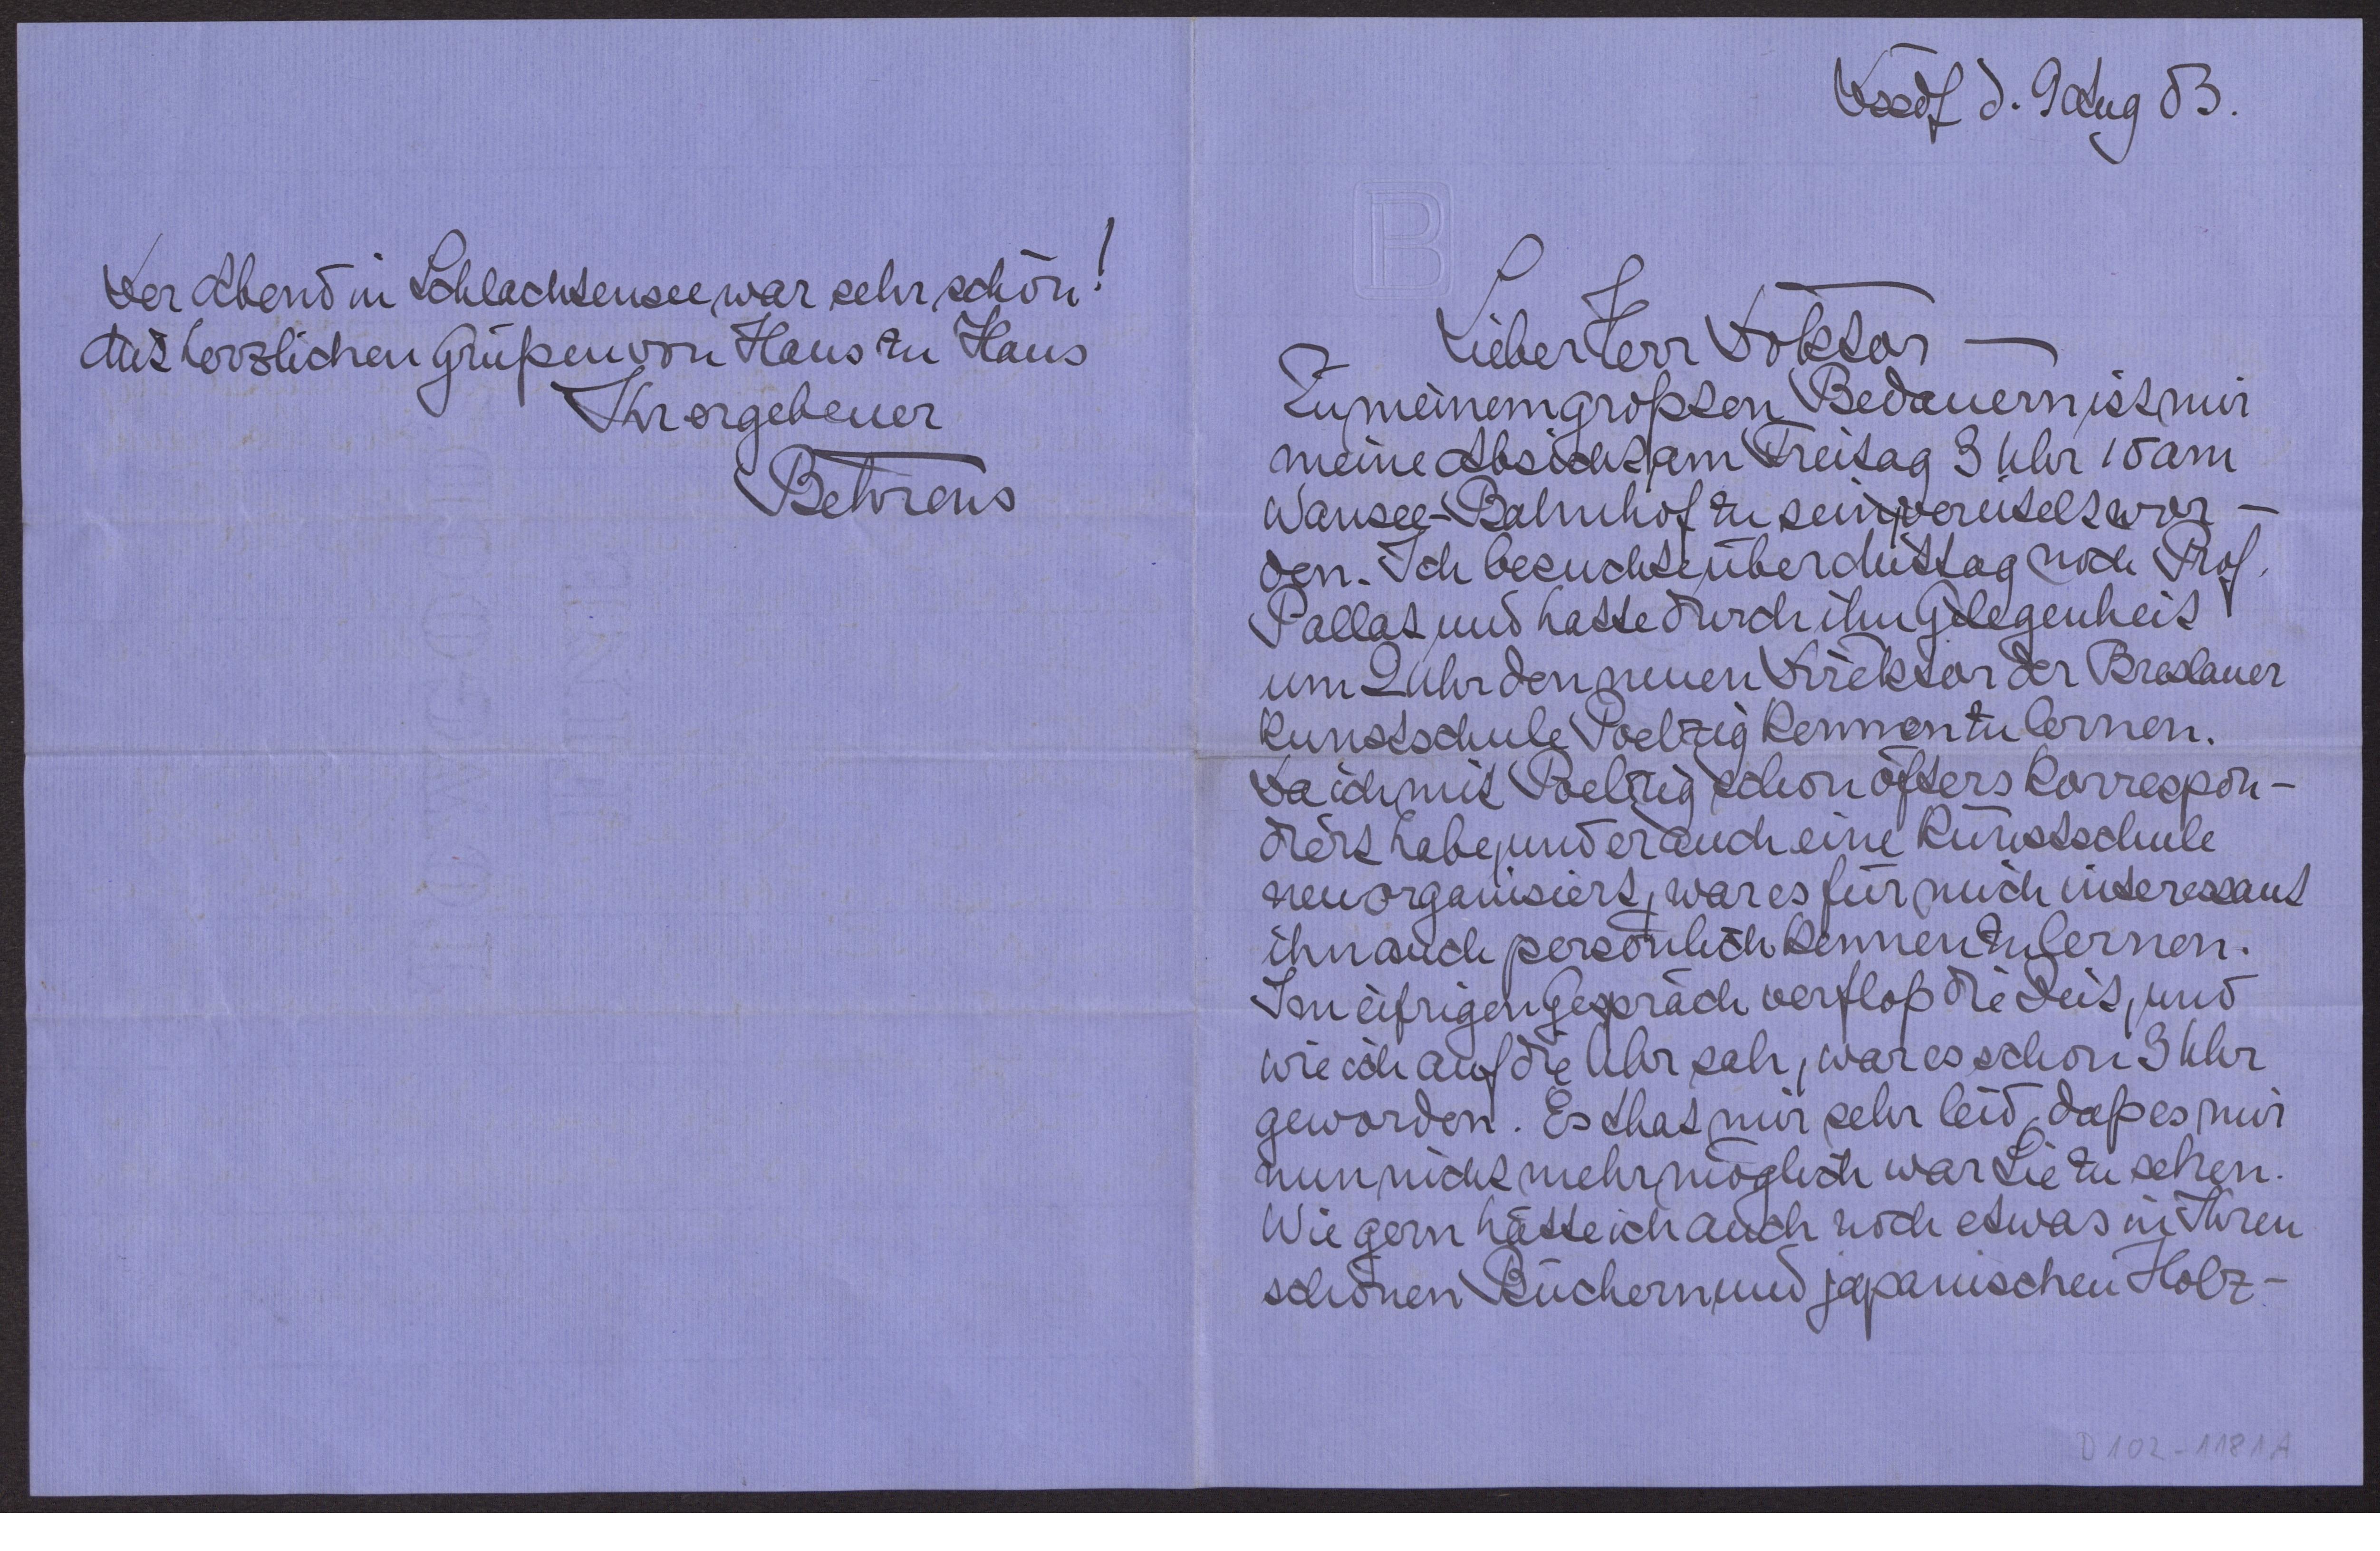 Dssdf d. 9 Aug 03.
B
Lieber Herr Doktor —
Zu meinem großten Bedauern ist mir
meine Absicht am Freitag 3 Uhr 15 am
Wansee-Bahnhof zu sein, vereitelt wor-
den. Ich besuchte über Mittag noch Prof.
Pallat und hatte durch ihn Gelegenheit
um 2 Uhr den neuen Direktor der Breslauer
Kunstschule Poelzig kennen zu lernen.
Da ich mit Poelzig schon öfters korrespon-
diert habe, und er auch eine Kunstschule
neu organisiert, war es für mich interessant
ihn auch persönlich kennen zu lernen.
Im eifrigen Gespräch verfloß die Zeit, und
wie ich auf die Uhr sah, war es schon 3 Uhr
geworden. Es that mir sehr leid, daß es mir
nun nicht mehr möglich war Sie zu sehen.
Wie gern hätte ich auch noch etwas in Ihren
schönen Büchern und japanischen Holz-
D 102-1181A
Der Abend in Schlachtensee war sehr schön!
Mit herzlichen Grüßen von Haus zu Haus
Ihr ergebener
Behrens